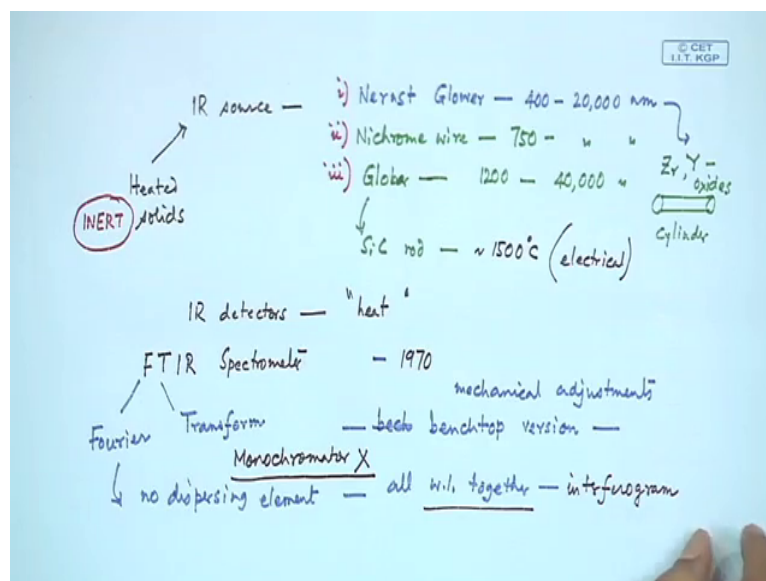 © CET
I.I.T. KGP
IR source — i) Nernst Glower — 400 - 20,000 nm
ii) Nichrome wire — 750 - " "
iii) Globar — 1200 - 40,000 "
Zr, Y - oxides
Cylinder
Heated solids
INERT
SiC rod — ~ 1500°C (electrical)
IR detectors — "heat"
FTIR Spectrometer - 1970
mechanical adjustments
Fourier Transform — benchtop version —
Monochromator X
no dispersing element — all w.l. together — interferogram